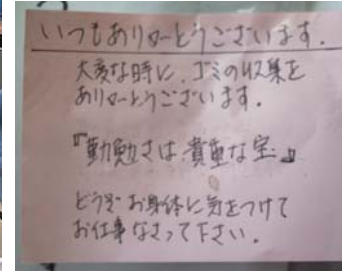 いつもありがとうございます.
大変な時に、ゴミの収集を
ありがとうございます.
『勤勉さは貴重な宝』
どうぞお身体に気をつけて
お仕事なさって下さい.